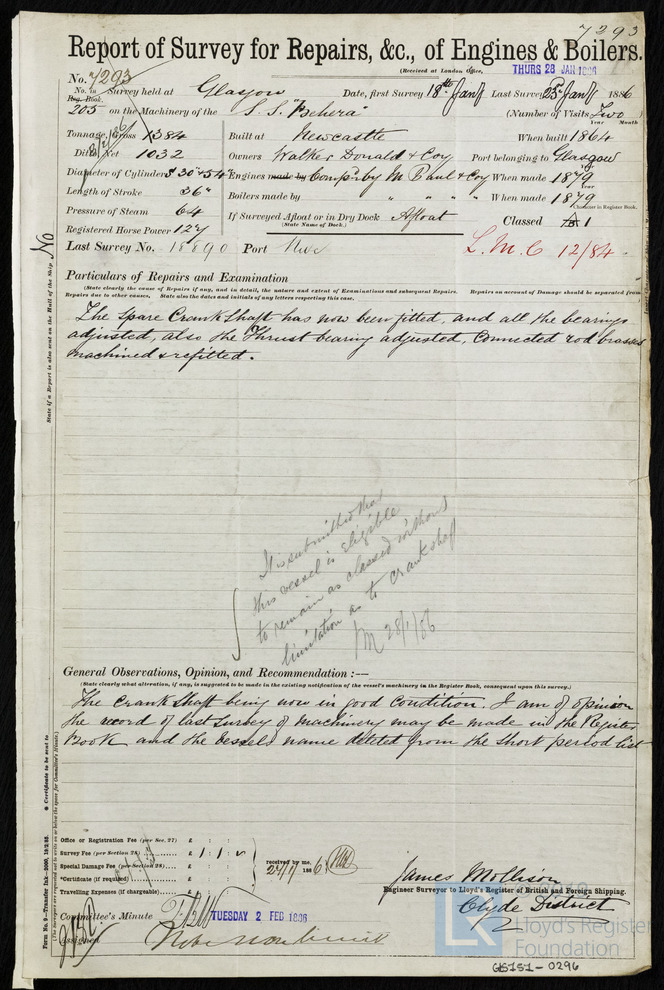 7293
Report of Survey for Repairs, &c., of Engines & Boilers.
(Received at London Office, THURS 28 JAN 1886
No. 7293
No. in Reg. Book. Survey held at Glasgow Date, first Survey 18th Jany Last Survey 25th Jany 1886
205 on the Machinery of the S.S. "Behera" (Number of Visits Two
Tonnage, Gross 1384 Built at Newcastle When built 1864 Year Month
Ditto Net 1032 Owners Walker Donald & Coy Port belonging to Glasgow
Diameter of Cylinders 30" & 54" Engines made by Comp'd by M. Paul & Coy When made 1879
Length of Stroke 36" Boilers made by " " " " When made 1879 Year
Pressure of Steam 64 If Surveyed Afloat or in Dry Dock Afloat Classed 1
(State Name of Dock.) Character in Register Book.
Registered Horse Power 127
Last Survey No. 18890 Port L.M.C 12/84
Particulars of Repairs and Examination
(State clearly the cause of Repairs if any, and in detail, the nature and extent of Examinations and subsequent Repairs. Repairs on account of Damage should be separated from
Repairs due to other causes, State also the dates and initials of any letters respecting this case.
The Spare Crank Shaft has now been fitted, and all the bearings
adjusted, also the Thrust bearing adjusted, Connected rod brasses
machined & refitted.
It is submitted that
this vessel is eligible
to remain as classed without
limitation as to crank shaft
28/1/86
General Observations, Opinion, and Recommendation :—
(State clearly what alteration, if any, is suggested to be made in the existing notification of the vessel's machinery in the Register Book, consequent upon this survey.)
The Crank Shaft being now in good condition. I am of opinion
the record of last survey of machinery may be made in the Register
Book and the vessels name deleted from the short period list
Office or Registration Fee (per Sec. 27) £ : :
Survey Fee (per Section 28) £ 1 : 1 :
Special Damage Fee (per Section 28) £ : :
*Certificate (if required) £ : :
Travelling Expenses (if chargeable) £ : :
received by me,
27/1/1886
James Mollison
Engineer Surveyor to Lloyd's Register of British and Foreign Shipping.
Clyde District
Committee's Minute TUESDAY 2 FEB 1886
Assigned
No
State if a Report is also sent on the Hull of the Ship.
* Certificate to be sent to
Form No. 9—Transfer Ink—2000, 19/2/85.
Lloyd's Register
Foundation
GLS151-0296